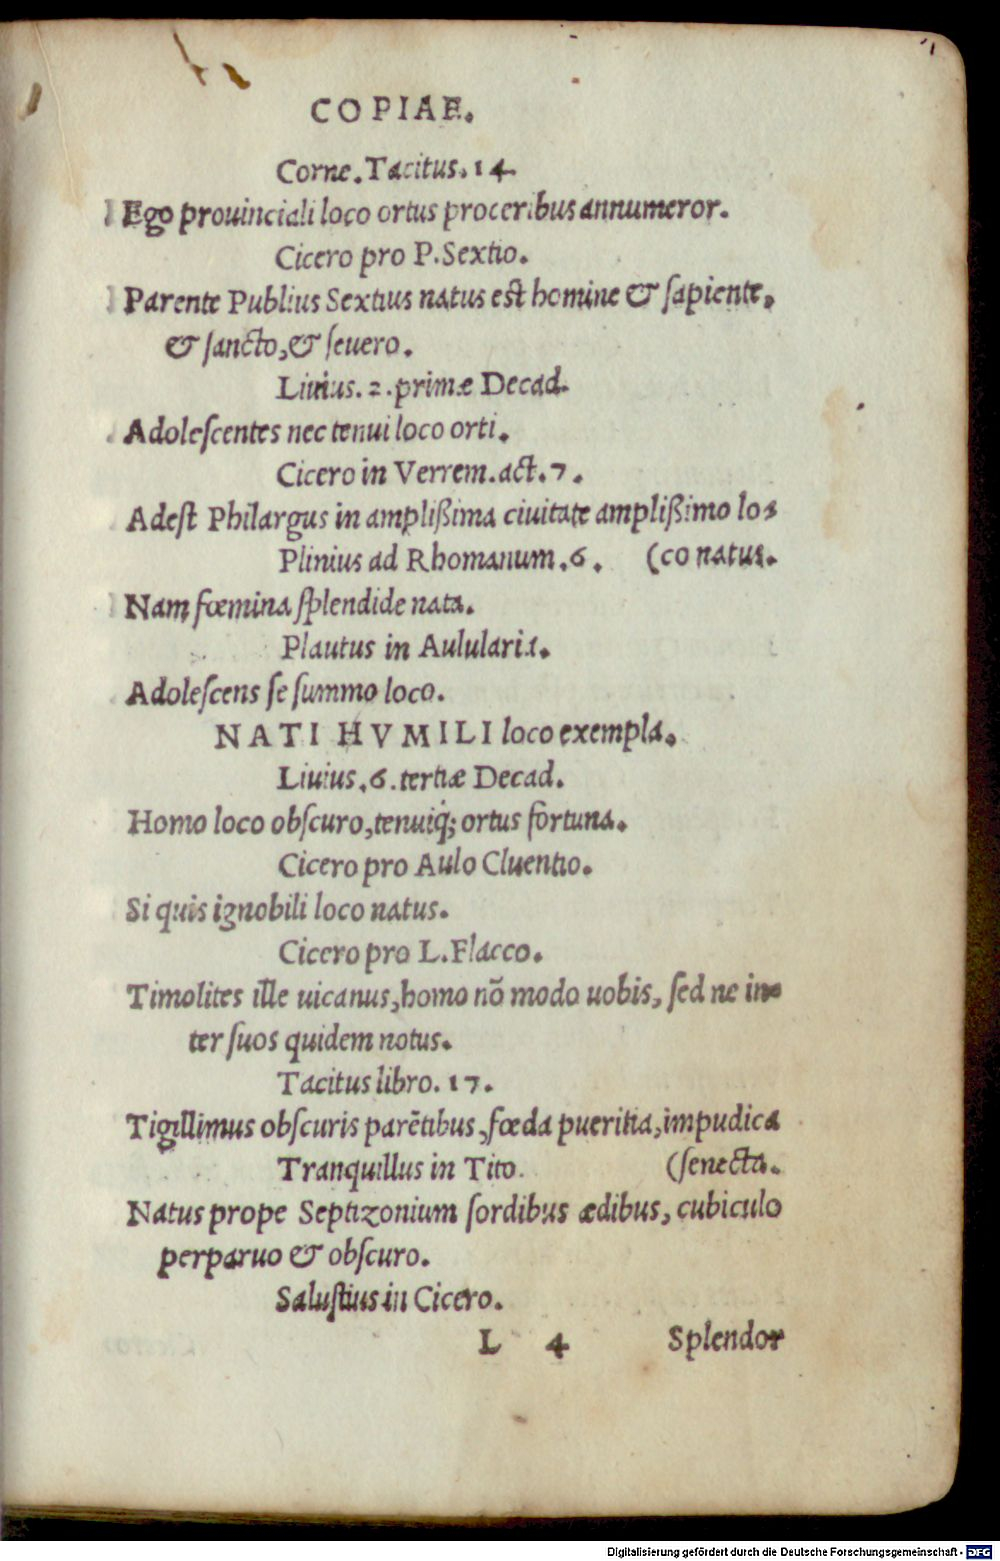 COPIAE.
Corne. Tacitus. 14.
Ego prouinciali loco ortus proceribus annumeror.
Cicero pro P. Sextio.
Parente Publius Sextius natus est homine & sapiente,
& sancto, & seuero.
Liuius. 2. primæ Decad.
Adolescentes nec tenui loco orti.
Cicero in Verrem. act. 7.
Adest Philargus in amplißima ciuitate amplißimo lo-
Plinius ad Rhomanum. 6. (co natus.
Nam fœmina splendide nata.
Plautus in Aulularia.
Adolescens se summo loco.
NATI HVMILI loco exempla.
Liuius. 6. tertiæ Decad.
Homo loco obscuro, tenuiq́; ortus fortuna.
Cicero pro Aulo Cluentio.
Si quis ignobili loco natus.
Cicero pro L. Flacco.
Timolites ille uicanus, homo nõ modo uobis, sed ne in-
ter suos quidem notus.
Tacitus libro. 17.
Tigillimus obscuris parẽtibus, fœda pueritia, impudica
Tranquillus in Tito. (senecta.
Natus prope Septizonium sordibus ædibus, cubiculo
perparuo & obscuro.
Salustius in Cicero.
L 4 Splendor
Digitalisierung gefördert durch die Deutsche Forschungsgemeinschaft - DFG